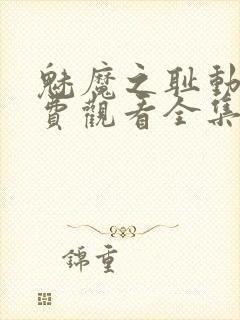 魅魔之耻動
費觀看全集
錦重